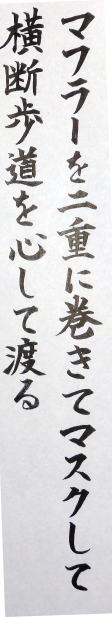 マフラーを二重に巻きてマスクして
横断歩道を心して渡る